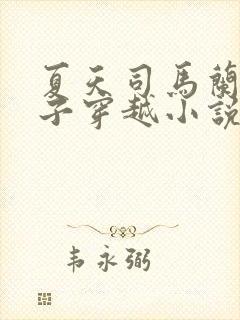 夏天司馬蘭
子穿越小說
韦永弼